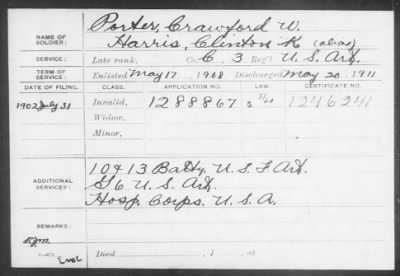 Porter, Crawford W.
NAME OF SOLDIER: Harris, Clinton K (alias)
SERVICE: Late rank, Co. C. 3 Reg't U. S. Art.
TERM OF SERVICE: Enlisted May 17, 1908 Discharged May 20, 1911
DATE OF FILING. CLASS. APPLICATION NO. LAW. CERTIFICATE NO.
July 31 Invalid, 1288867 1246241
Widow,
Minor,
ADDITIONAL SERVICES: 10 & 13 Batty. U. S. F Art.
G 6 U. S. Art.
Hosp Corps. U. S. A.
REMARKS:
Died